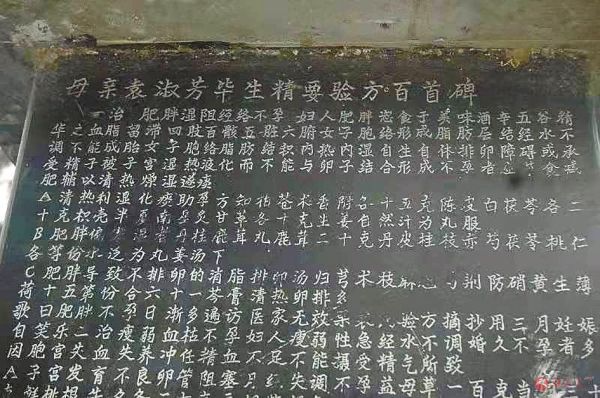 母亲袁淑芳毕生精要验方百首碑
一治 肥胖湿阻经络不孕 妇人肥胖恣食于美味酒辛五谷精
华之血脂留滞四肢百骸五脏六腑女子胞络形成脂肪层结经水不
调不能成胎女子胞络脂肪结积内热内湿自生自体排卵障碍或承
受精子被子宫湿热液化而不能与卵子结合形成不孕者 节食减
肥辅以清热燥湿
A清热利湿化痰助孕方 知柏苍术香附各十五克陈皮白茯苓各二
十克枳壳半夏南星炙甘草各十克生姜自然汁为丸服
B肥胖偏寒湿者丹桂鹿茸丸鹿茸二十克丹皮桂枝赤芍茯苓桃仁
各等份水泛为丸姜汤下
C肥胖导致不排卵的消脂排卵汤归芎术枝 防硝黄生薄
荷十五第份合六十一岑膏清热卵排
歌曰肥胖不孕日渐多遍访医家无效 验方摘抄用三月妊娠
自笑乐二治瘦弱血枯不孕妇人瘦弱性急经水不调婚久不孕者多
因胞宫失血失养冲任精血不足不能摄受精气所致
子宫发育不良卵管阻塞月 不调不孕益母草一百克当